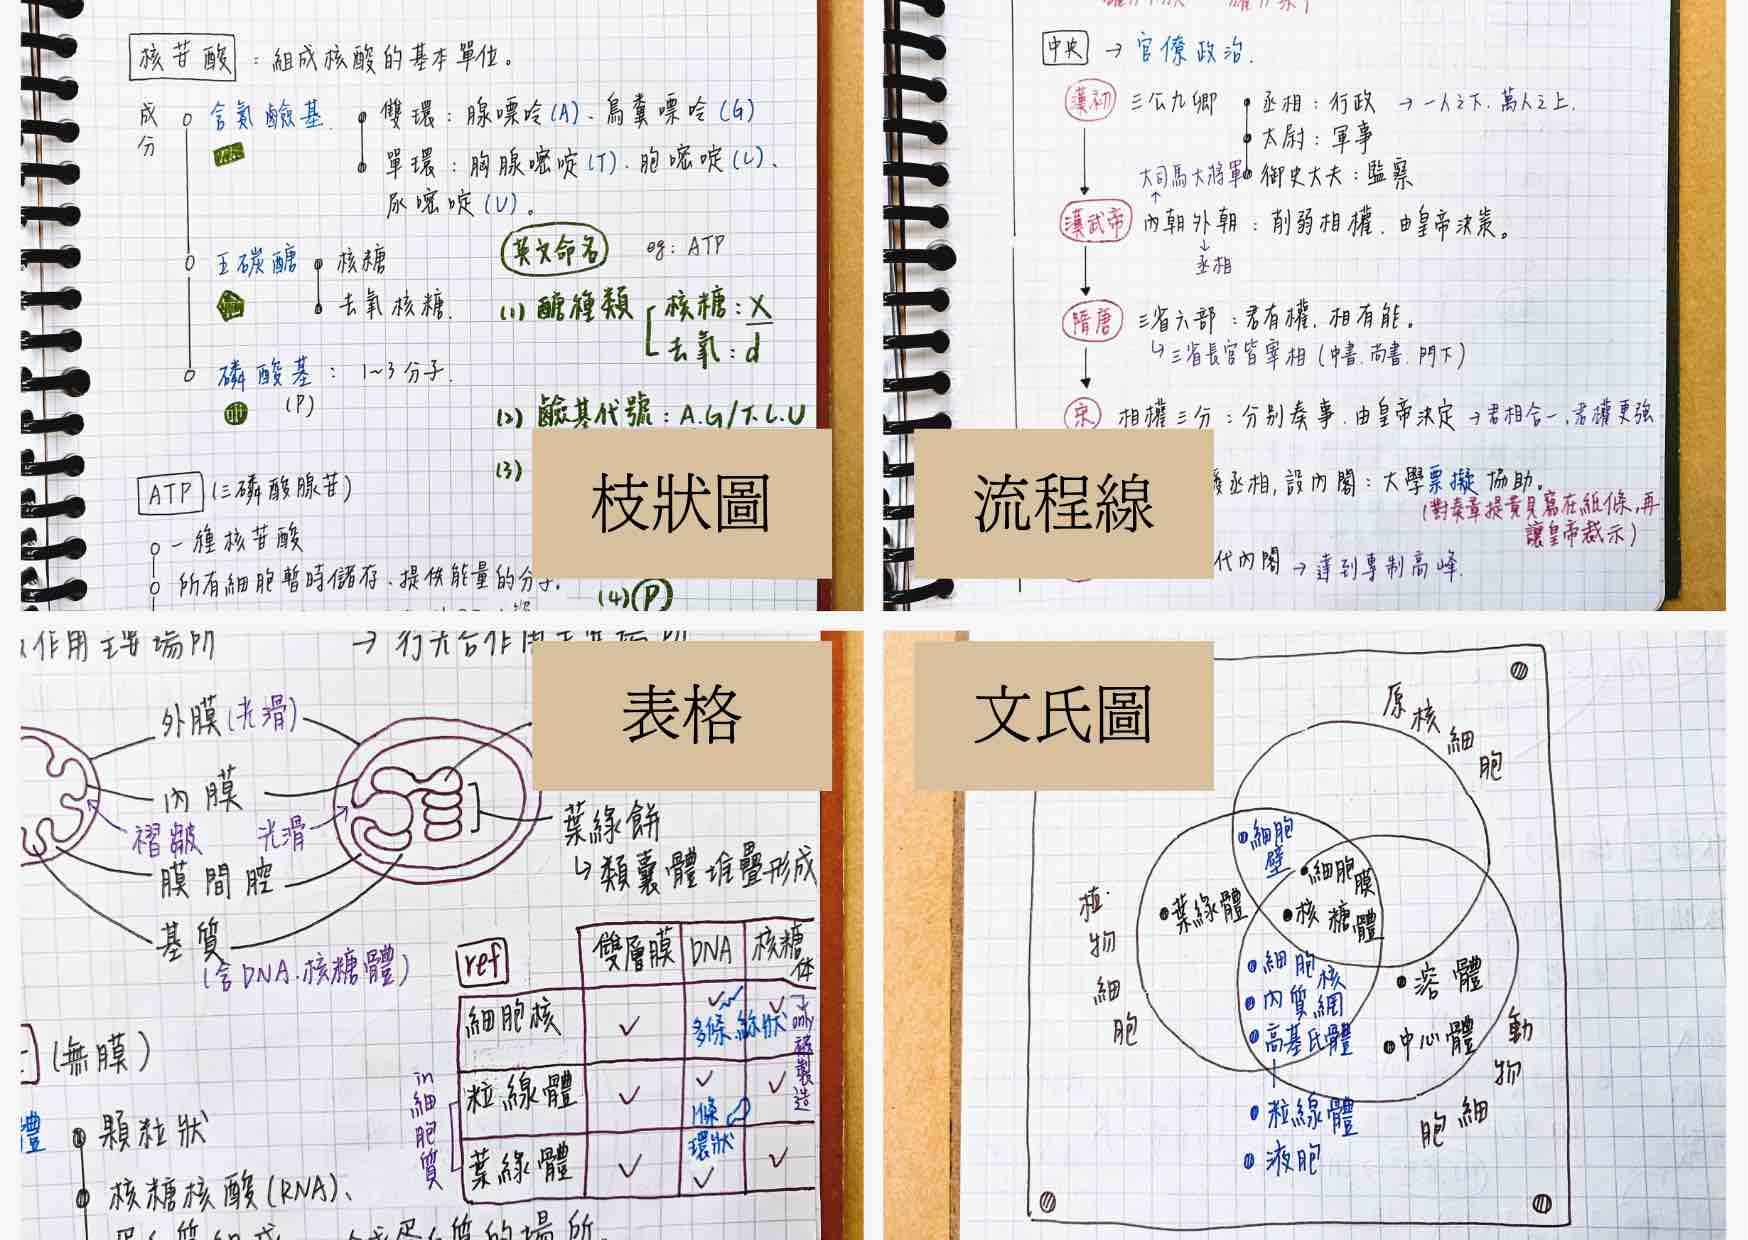 核苷酸：組成核酸的基本單位。
成分
含氮鹼基
雙環：腺嘌呤(A)、鳥糞嘌呤(G)
單環：胸腺嘧啶(T)、胞嘧啶(C)、
尿嘧啶(U)。
五碳醣
核糖
去氧核糖.
磷酸基：1~3分子.
(P)
英文命名 eg: ATP
(1) 醣種類 核糖：X
去氧：d
(2) 鹼基代號：A.G/T.C.U
(3)
(4) P
ATP (三磷酸腺苷)
一種核苷酸
所有細胞暫時儲存、提供能量的分子.
枝狀圖
中央 → 官僚政治.
漢初 三公九卿 丞相：行政 → 一人之下.萬人之上.
太尉：軍事
大司馬大將軍 御史大夫：監察
漢武帝 內朝外朝：削弱相權.由皇帝決策。
丞相
隋唐 三省六部：君有權.相有能。
↳三省長官皆宰相(中書.尚書.門下)
宋 相權三分：分別奏事.由皇帝決定 → 君相合一,君權更強
丞相,設內閣：大學票擬協助。
(對奏章提意見寫在紙條,再
讓皇帝裁示)
代內閣 → 達到專制高峰.
流程線
作用主要場所
→ 行光合作用主要場所
外膜(光滑)
內膜
褶皺
光滑
膜間腔
基質
(含DNA.核糖體)
葉綠餅
↳類囊體堆疊形成
表格
ref 雙層膜 DNA 核糖体
細胞核 ✓ ✓ 多條 絲狀 ✓
only 被製造
粒線體 ✓ ✓ 1條 環狀 ✓
葉綠體 ✓ ✓ ✓
in細胞質
(無膜)
體
顆粒狀
核糖核酸(RNA)、
文氏圖
原核細胞
植物細胞
動物細胞
細胞壁
葉綠體
細胞膜
核糖體
細胞核
內質網
高基氏體
粒線體
液胞
溶體
中心體